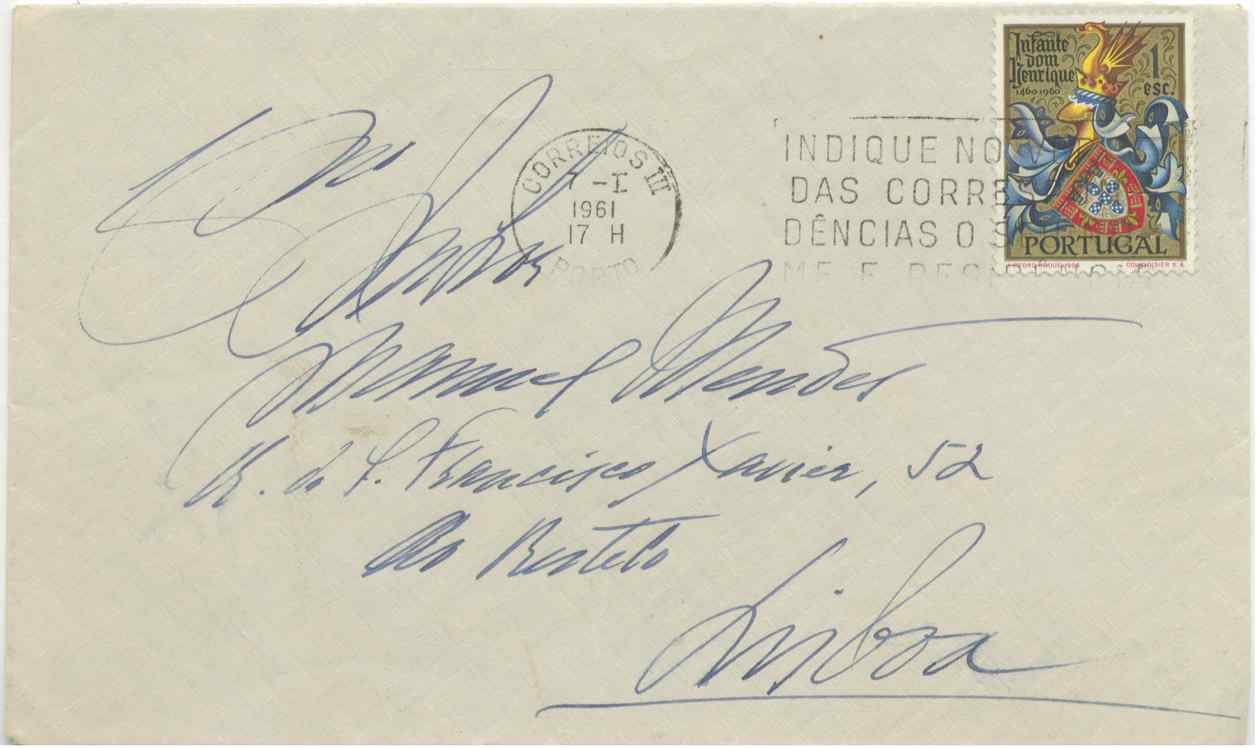 Infante
dom
Henrique
1460·1960
1
esc.
PORTUGAL
COURVOISIER S.A.
CORREIOS III
7 -I
1961
17 H
PORTO
INDIQUE NO
DAS CORRE
DÊNCIAS O S
ME E
Exmo
Senhor
Manuel Mendes
R. de S. Francisco Xavier, 52
Ao Restelo
Lisboa